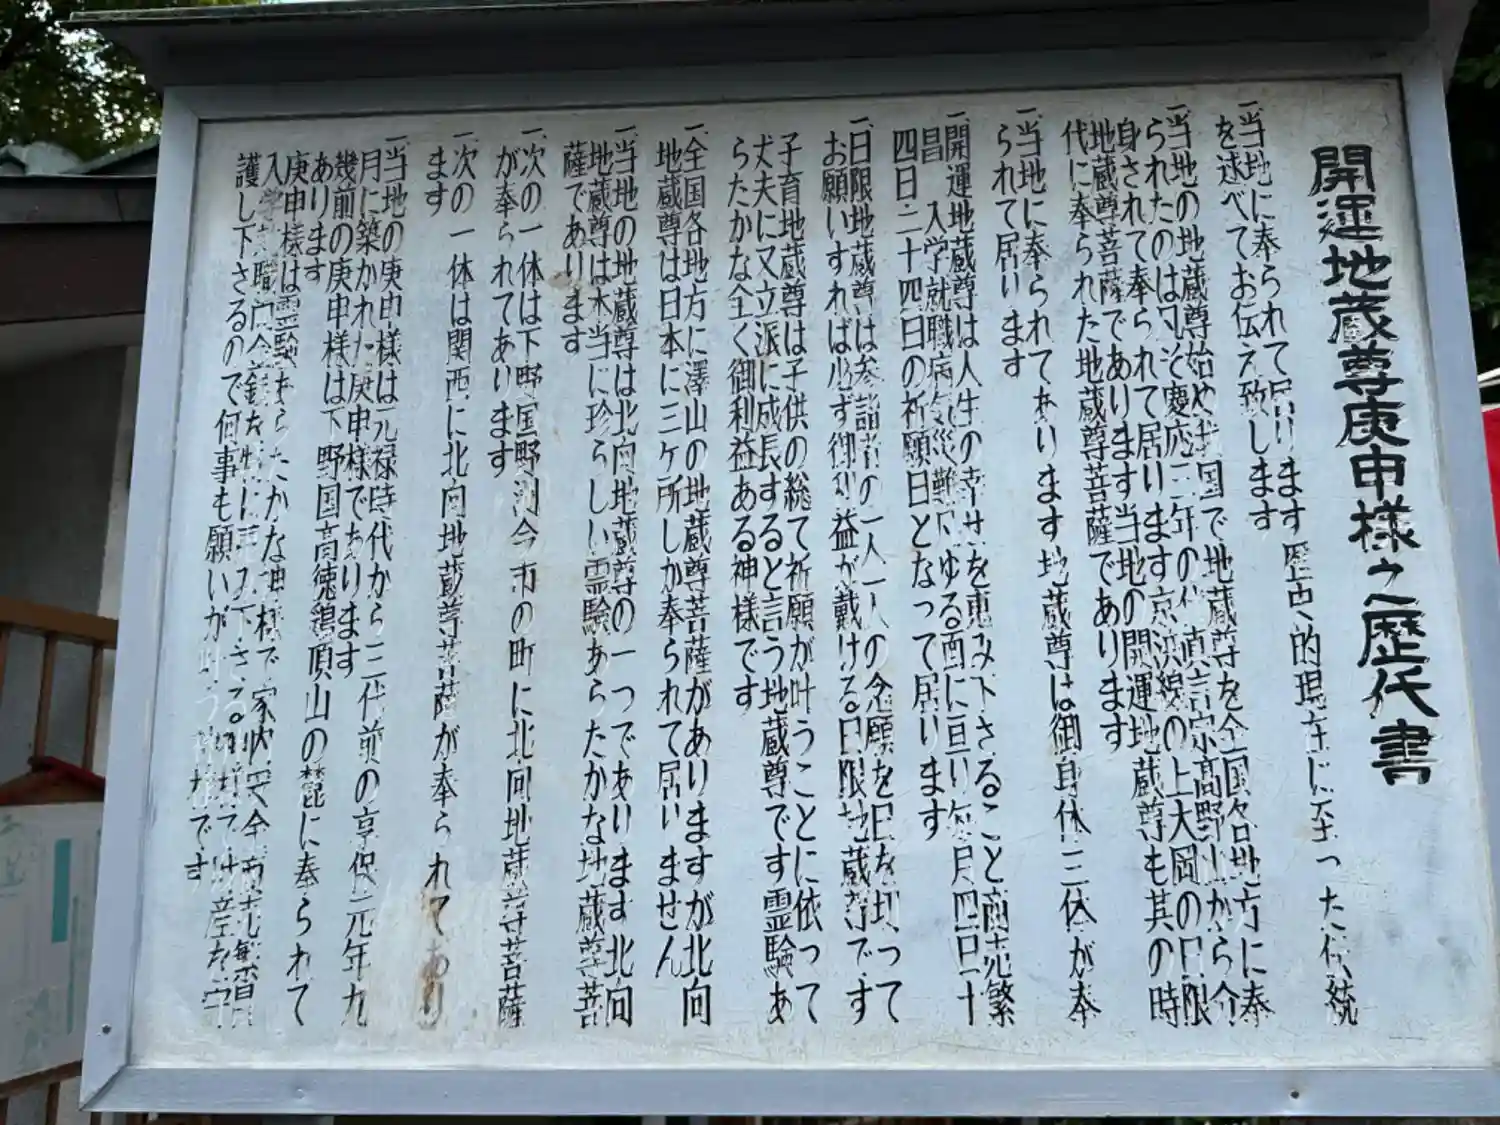 開運地蔵尊庚申様之歴代書
一、当地に奉られて居ります歴史的現在に至った伝統
を述べてお伝え致します
一、当地の地蔵尊始め我国で地蔵尊を全国各地方に奉
られたのは凡そ慶応三年の代真言宗高野山から介
身されて奉られて居ります京浜線の上大岡の日限
地蔵尊菩薩であります当地の開運地蔵尊も其の時
代に奉られた地蔵尊菩薩であります
一、当地に奉られてあります地蔵尊は御身体三体が奉
られて居ります
一、開運地蔵尊は人生の幸せを恵み下さること商売繁
昌 入学就職病気災難 ゆる面に亘り毎月四日十
四日二十四日の祈願日となって居ります
一、日限地蔵尊は参詣者の一人一人の念願を日を切って
お願いすれば必ず御利益が戴ける日限地蔵尊です
子育地蔵尊は子供の総て祈願が叶うことに依って
丈夫に又立派に成長すると言う地蔵尊です霊験あ
らたかな全く御利益ある神様です
一、全国各地方に澤山の地蔵尊菩薩がありますが北向
地蔵尊は日本に三ヶ所しか奉られて居いません
一、当地の地蔵尊は北向地蔵尊の一つであります北向
地蔵尊は本当に珍らしい霊験あらたかな地蔵尊菩
薩であります
一、次の一体は下野国野洲今市の町に北向地蔵尊菩薩
が奉られてあります
一、次の一体は関西に北向地蔵尊菩薩が奉られてあり
ます
一、当地の庚申様は元禄時代から三代前の享保元年九
月に築かれた庚申様であります
幾前の庚申様は下野国高徳鶏頂山の麓に奉られて
あります
庚申様は霊験あらたかな神様で家内安全商売繁昌
入学 職 金銭を 下さる 財産を守
護し下さるので何事も願いが叶う神様です